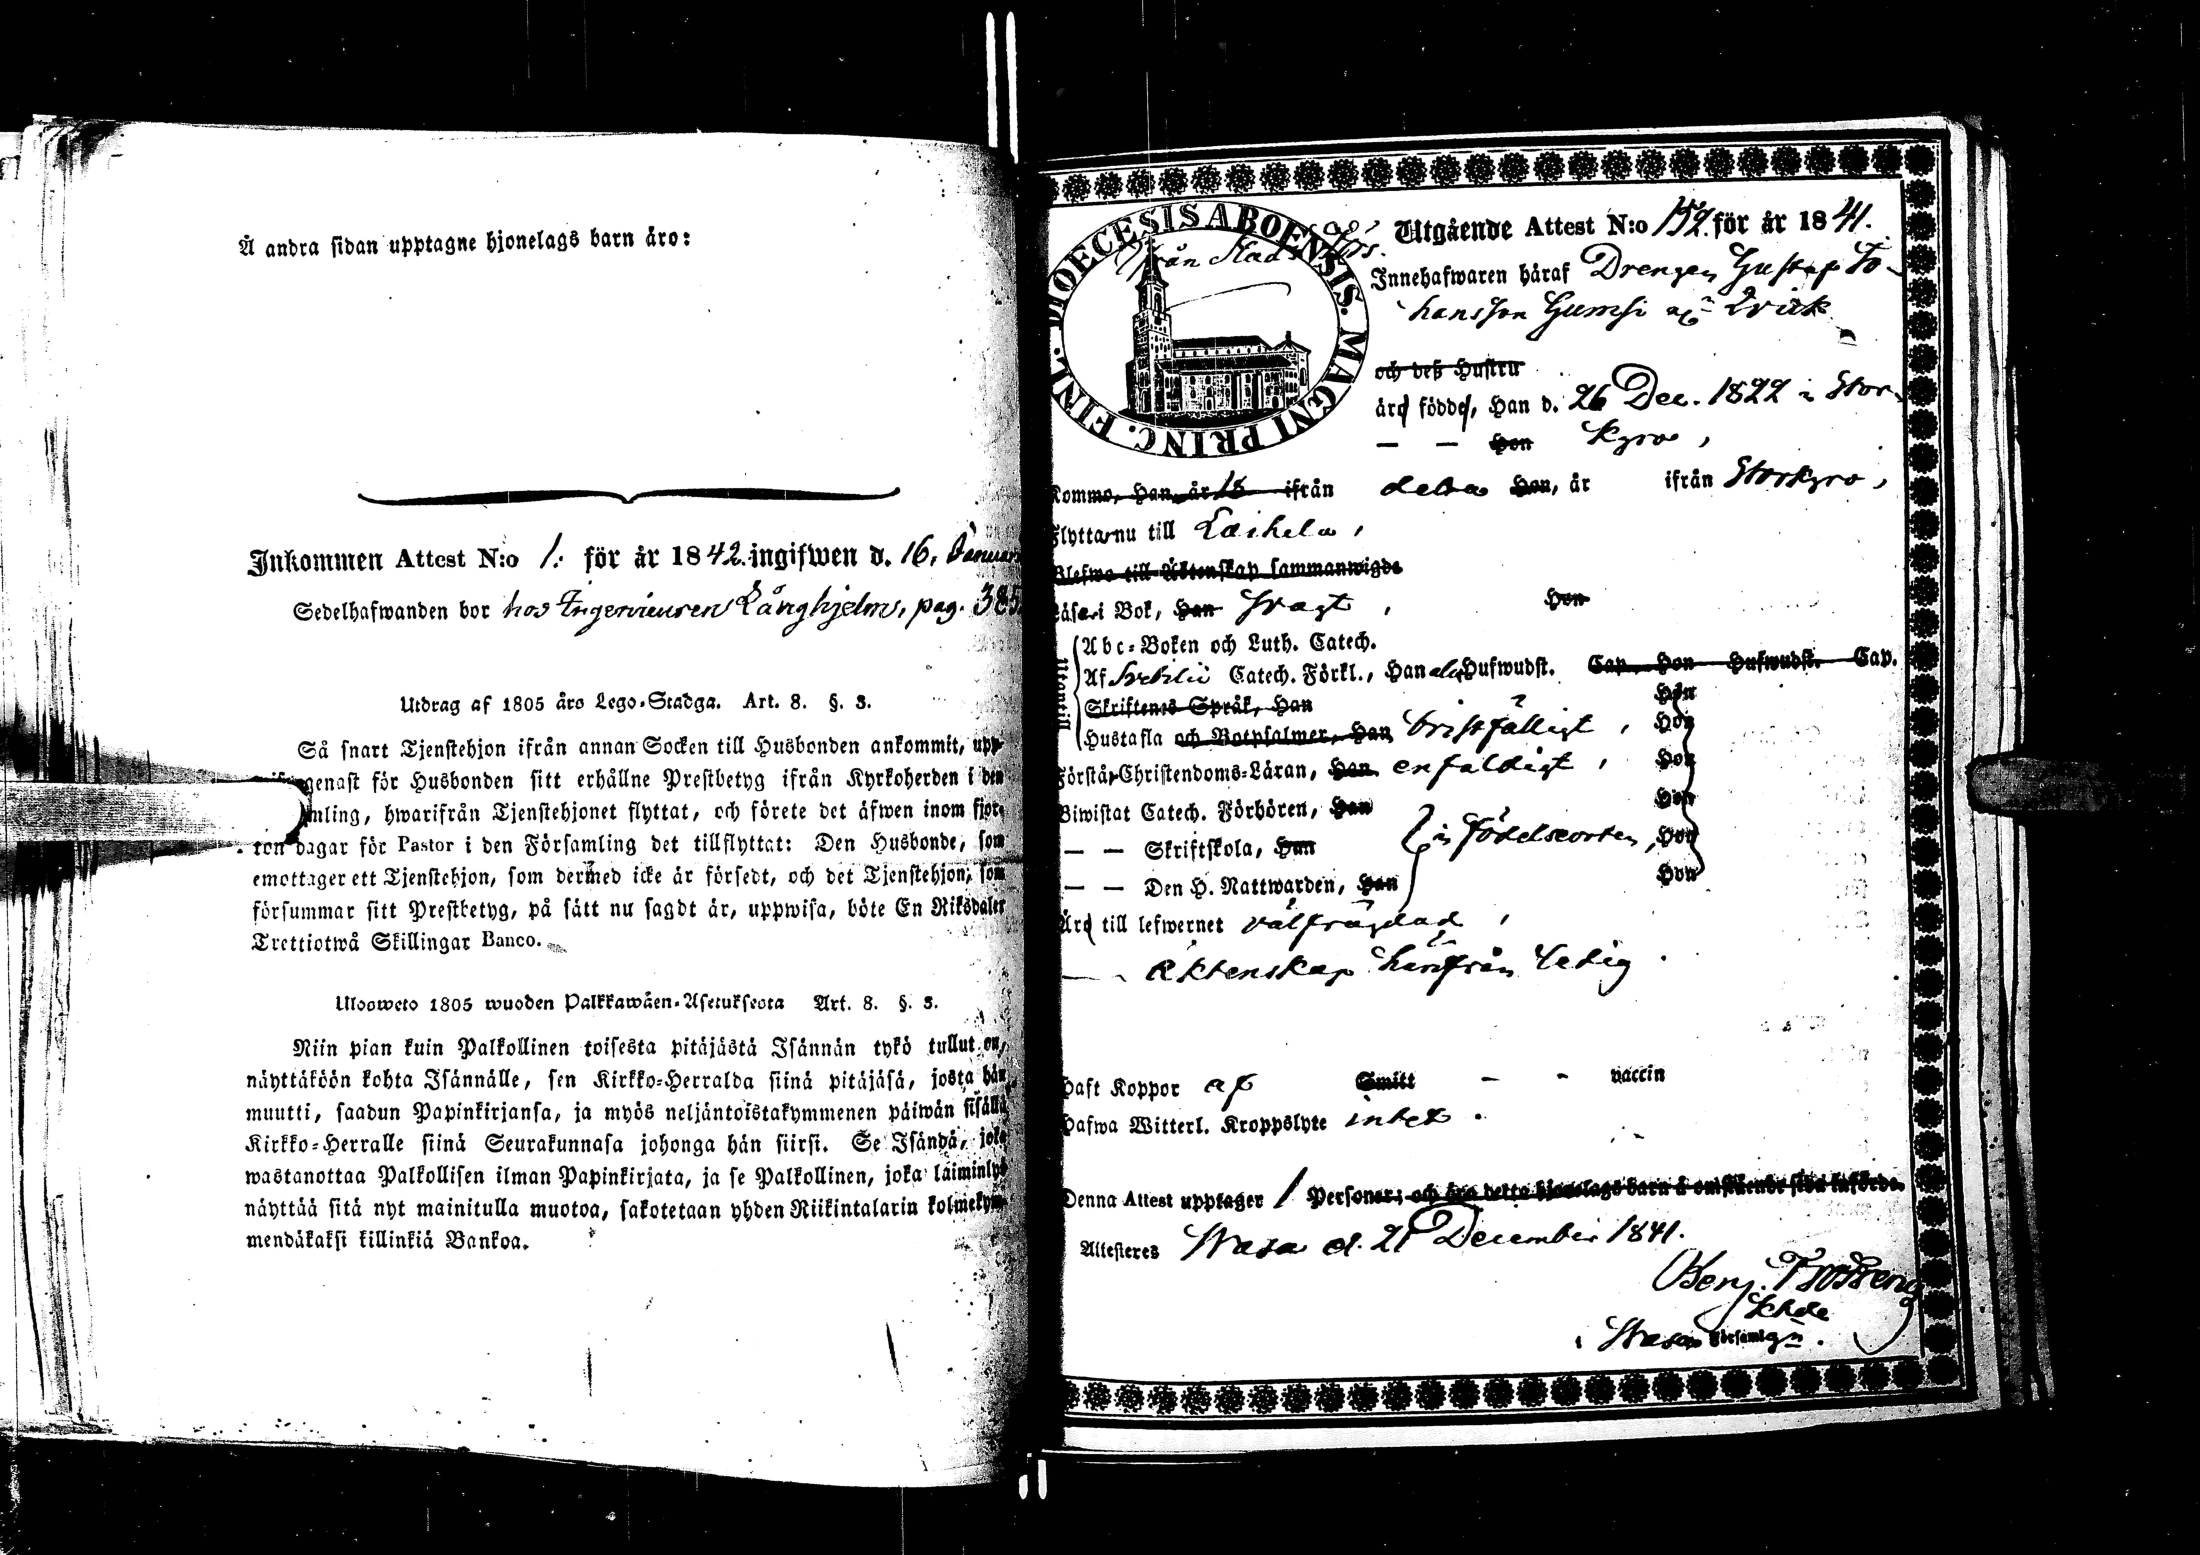 Å andra sidan upptagne hjonelags barn äro:
Inkommen Attest N:o 1. för år 1842. ingifwen d. 16. Januari
Sedelhafwanden bor hos Ingenieuren Långhjelm, pag. 385.
Utdrag af 1805 års Lego-Stadga. Art. 8. §. 3.
Så snart Tjenstehjon ifrån annan Socken till Husbonden ankommit, upp-
genast för Husbonden sitt erhållne Prestbetyg ifrån Kyrkoherden i den
mling, hwarifrån Tjenstehjonet flyttat, och förete det äfwen inom fjor-
ton dagar för Pastor i den Församling det tillflyttat: Den Husbonde, som
emottager ett Tjenstehjon, som dermed icke är försedt, och det Tjenstehjon, som
försummar sitt Prestbetyg, på sätt nu sagdt är, uppwisa, böte En Riksdaler
Trettiotwå Skillingar Banco.
Ulosweto 1805 wuoden Palkkawäen-Asetuksesta Art. 8. §. 3.
Niin pian kuin Palkollinen toisesta pitäjästä Isännän tykö tullut on,
näyttäköön kohta Isännälle, sen Kirkko-Herralda siinä pitäjäsä, josta hän
muutti, saadun Papinkirjansa, ja myös neljäntoistakymmenen päiwän sisällä
Kirkko-Herralle siinä Seurakunnasa johonga hän siirsi. Se Isändä, joka
wastanottaa Palkollisen ilman Papinkirjata, ja se Palkollinen, joka laiminlyö
näyttää sitä nyt mainitulla muotoa, sakotetaan yhden Riikintalarin kolmekym-
mendäkaksi killinkiä Bankoa.
DIOECESIS ABOENSIS. MAGNI PRINC. FINL.
Ifrån Stads Förs.
Utgående Attest N:o 152. för år 1841.
Innehafwaren häraf Drengen Gustaf Jo-
hansson Gumsi
och deß Hustru
äro födde, Han d. 26 Dec. 1822 i Stor-
— — Hon kyro,
Kommo, Han, år 18 ifrån Hon, år ifrån Storkyro,
Flyttar nu till Laihela,
Blefwo till Äktenskap sammanwigde
Läser i Bok, Han swagt, Hon
Utantill
Abc-Boken och Luth. Catech.
Af Svebilii Catech. Förkl., Han Hufwudst. Cap. Hon Hufwudst. Cap.
Skriftenes Språk, Han Hon
Hustafla och Botpsalmer, Han bristfälligt, Hon
Förstår Christendoms-Läran, Han enfaldigt, Hon
Biwistat Catech. Förhören, Han Hon
— — Skriftskola, Han i födelseorten, Hon
— — Den H. Nattwarden, Han Hon
Äro till lefwernet välfrägdad,
— Äktenskap härifrån ledig.
Haft Koppor af Smitt - - vaccin
Hafwa Witterl. Kroppslyte intet.
Denna Attest upptager 1 Personer; och äro detta hjonelags barn å omstående sida införde.
Attesteres Wasa d. 21 December 1841.
Benj. Frosterus
i Wasa Församlgn.